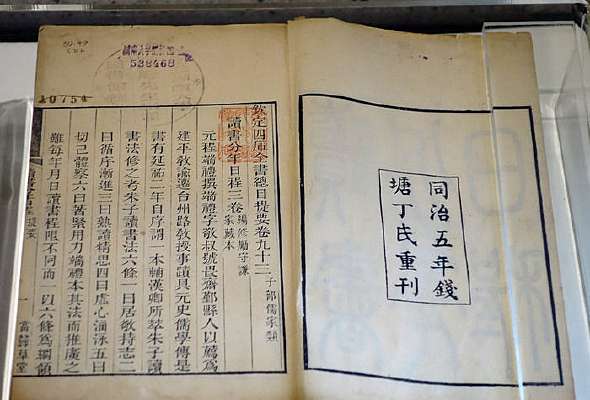 同治五年錢
塘丁氏重刊
538468
10754
欽定四庫全書總目提要卷九十二 子部儒家類
讀書分年日程三卷 編修勵守謙家藏本
元程端禮撰端禮字敬叔號畏齋鄞縣人以薦爲
建平敎諭遷台州路敎授事蹟具元史儒學傳是
書有延祐二年自序謂一本輔漢卿所萃朱子讀
書法修之考朱子讀書法六條一曰居敬持志二
曰循序漸進三曰熟讀精思四曰虛心涵泳五曰
切己體察六曰著緊用力端禮本其法而推廣之
雖每年月日讀書程限不同而一以六條爲綱領
當歸草堂